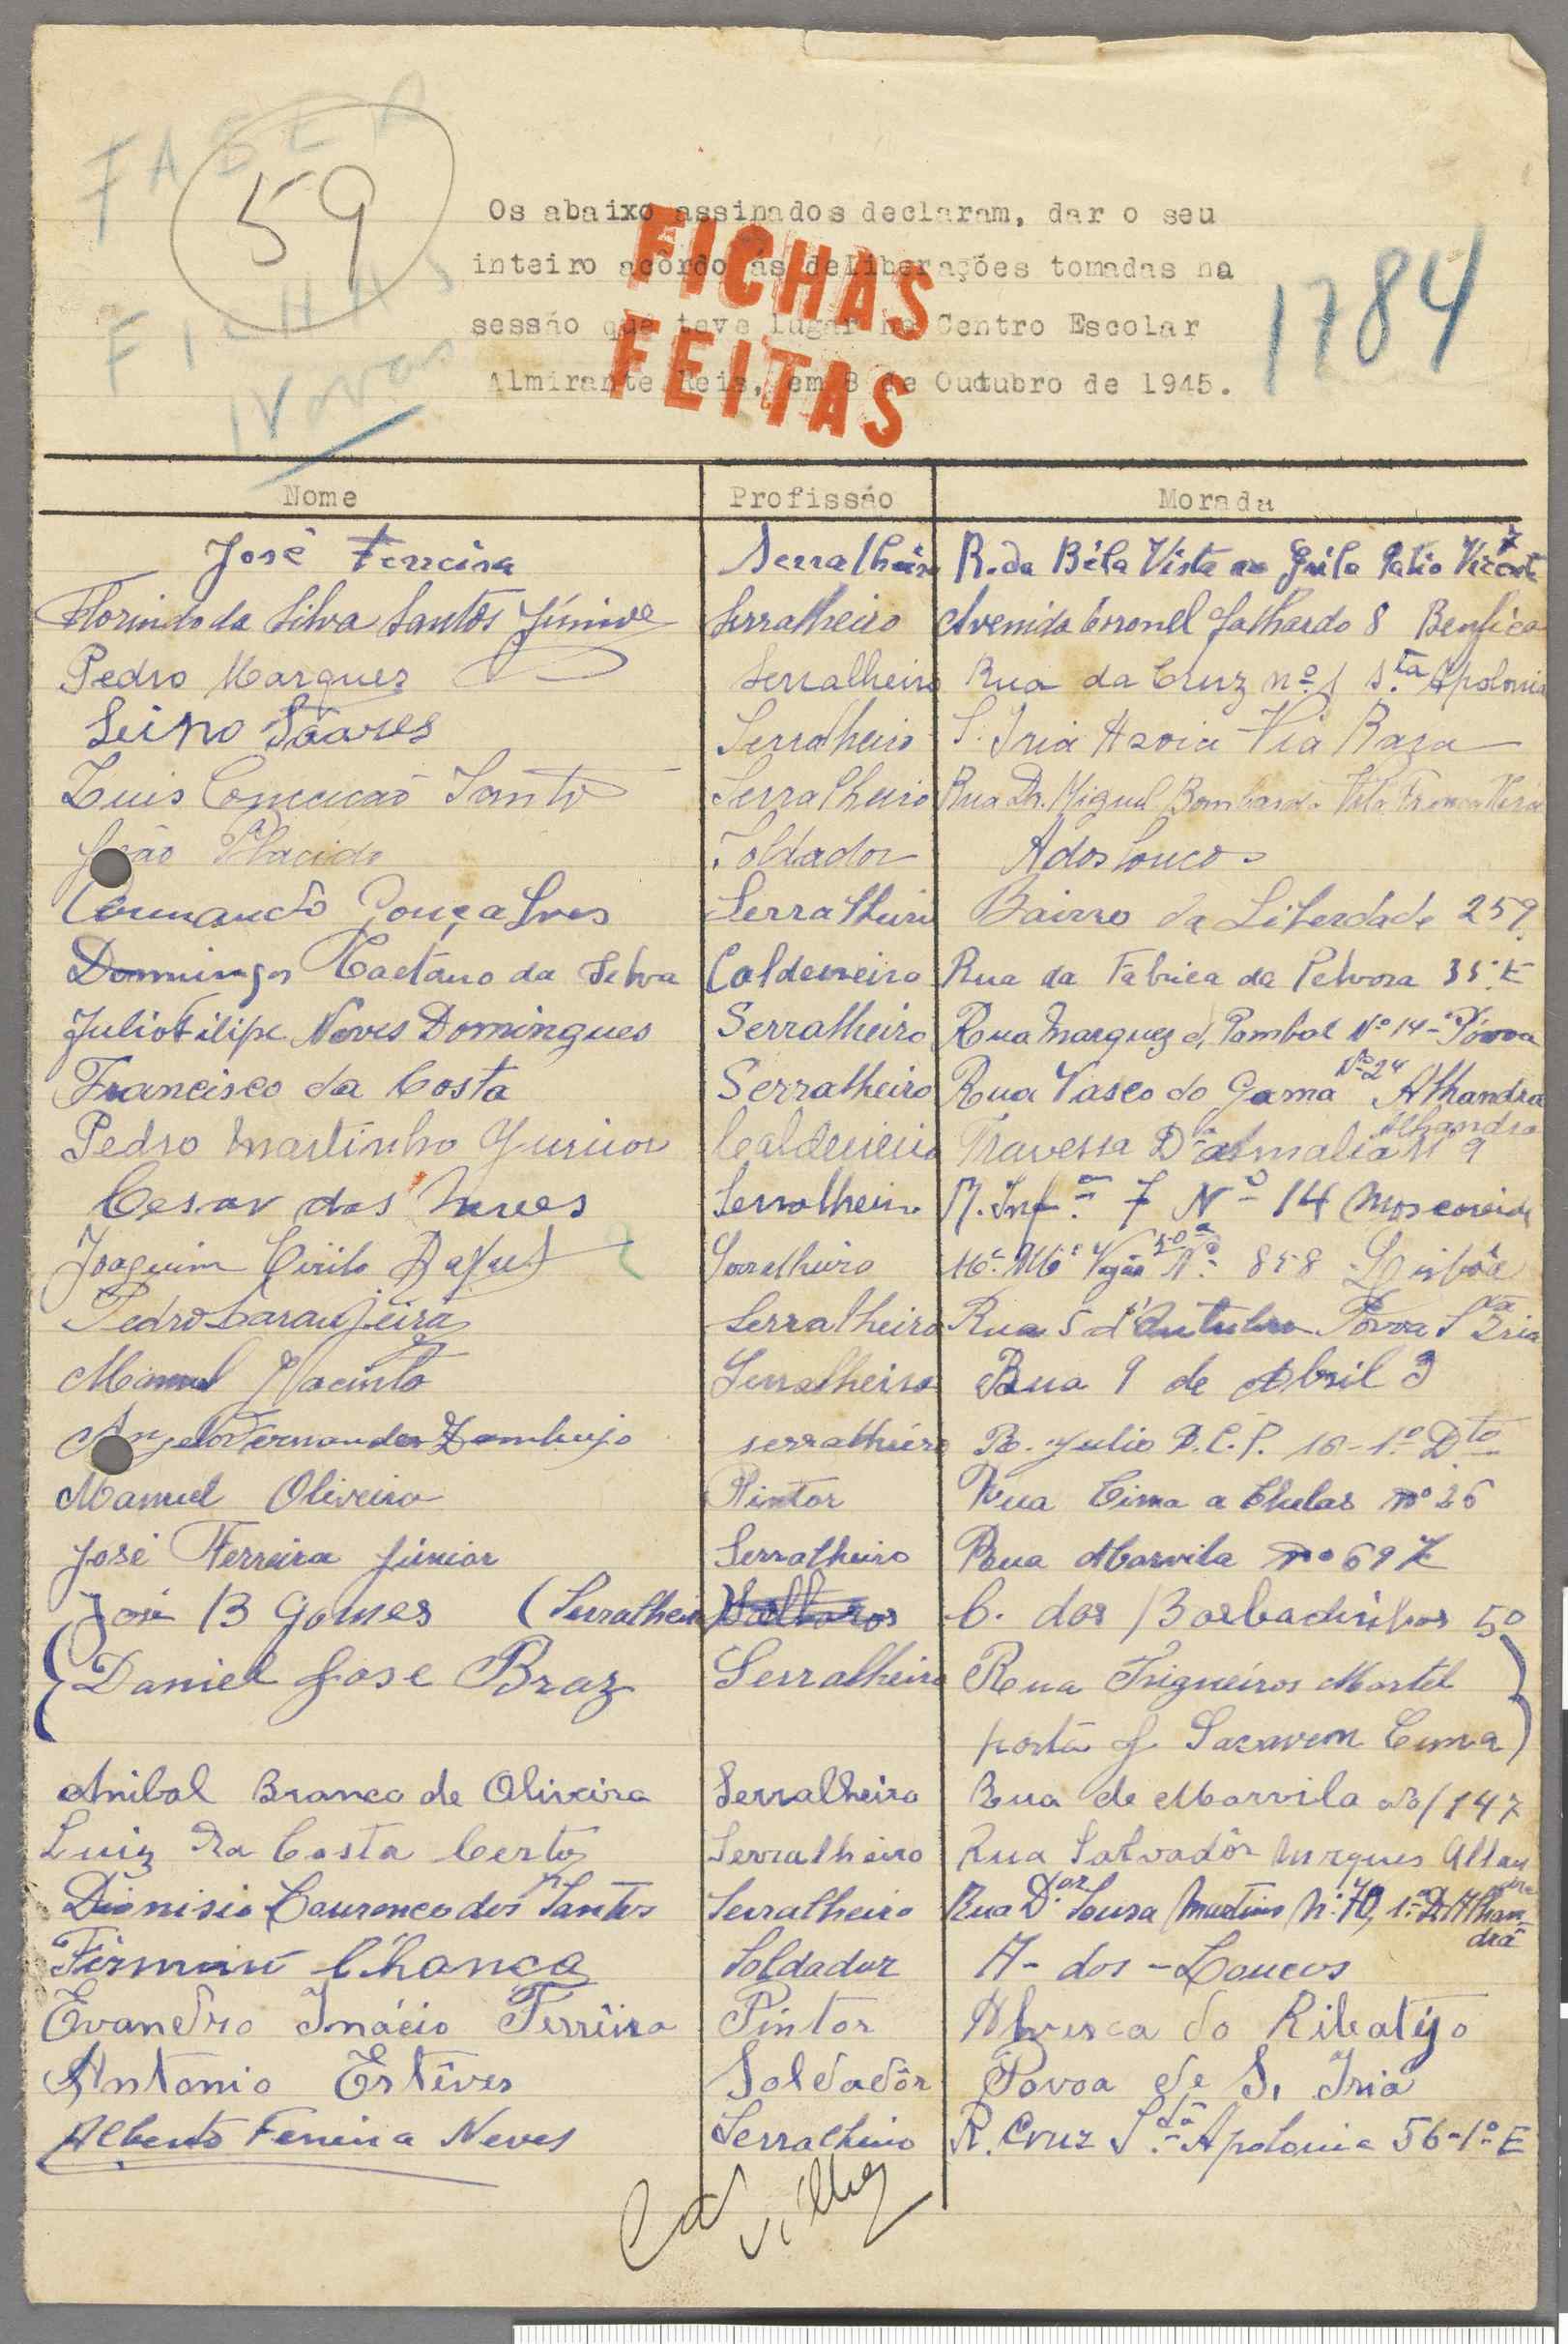 FAZER
59
FICHAS
novas
Os abaixo assinados declaram, dar o seu
inteiro acôrdo ás deliberações tomadas na
sessão que teve lugar no Centro Escolar
Almirante Reis, em 8 de Outubro de 1945.
FICHAS
FEITAS
1784
Nome Profissão Morada
José Ferreira Serralheiro R. da Béla Vista Grila Patio
Florindo da Silva Santos Júnior Serralheiro Avenida Coronel Galhardo 8 Benfica
Pedro Marques Serralheiro Rua da Cruz nº 1 Sta Apolonia
Soares Serralheiro S. Iria Azoia Via Rara
Luis Conceicão Santos Serralheiro Rua Dr. Miguel Bombarda Vila Franca Xira
João Placido Soldador A dos Loucos
Armando Gonçalves Serralheiro Bairro da Liberdade 259
Domingos Caetano da Silva Caldeireiro Rua da Fabrica da Polvora 35
Julio Filipe Neves Domingues Serralheiro Rua Marquez d, Pombal Nº 14 - Póvoa
Francisco da Costa Serralheiro Rua Vasco da Gama Nº 24 Alhandra
Pedro Martinho Junior Caldeireiro Travessa Nº 9 Alhandra
Cesar das Neves Serralheiro 7 Nº 14 Moscavide
Joaquim Cirilo Rafael Serralheiro Nº 858 Lisbôa
Pedro Laranjeira Serralheiro Rua 5 d'Outubro Povoa Sta Iria
Manuel Jacinto Serralheiro Rua 9 de Abril 3
Angelo Fernandes Zambujo serralheiro R. Julio 1º Dto
Manuel Oliveira Pintor Rua Cima a Chelas nº 26
José Ferreira Júnior Serralheiro Rua Marvila nº 69
José B Gomes (Serralheiro) C. dos Barbadinhos 50
Daniel José Braz Serralheiro Rua Trigueiros Martel
porta J Sacavem Cima
Anibal Branco de Oliveira Serralheiro Rua de Marvila 147
Luiz da Costa Certo Serralheiro Rua Salvadôr Marques Alhandra
Dionisio Lourenco dos Santos Serralheiro Rua Dor Sousa Martins Nº 70, 1º D Alhandrâ
Firmino Chança Soldador A - dos - Loucos
Evandro Inácio Ferreira Pintor Alverca do Ribatejo
Antonio Estêves Soldadôr Povoa de S. Iria
Alberto Ferreira Neves Serralheiro R. Cruz Sta Apolonia 56-1º E